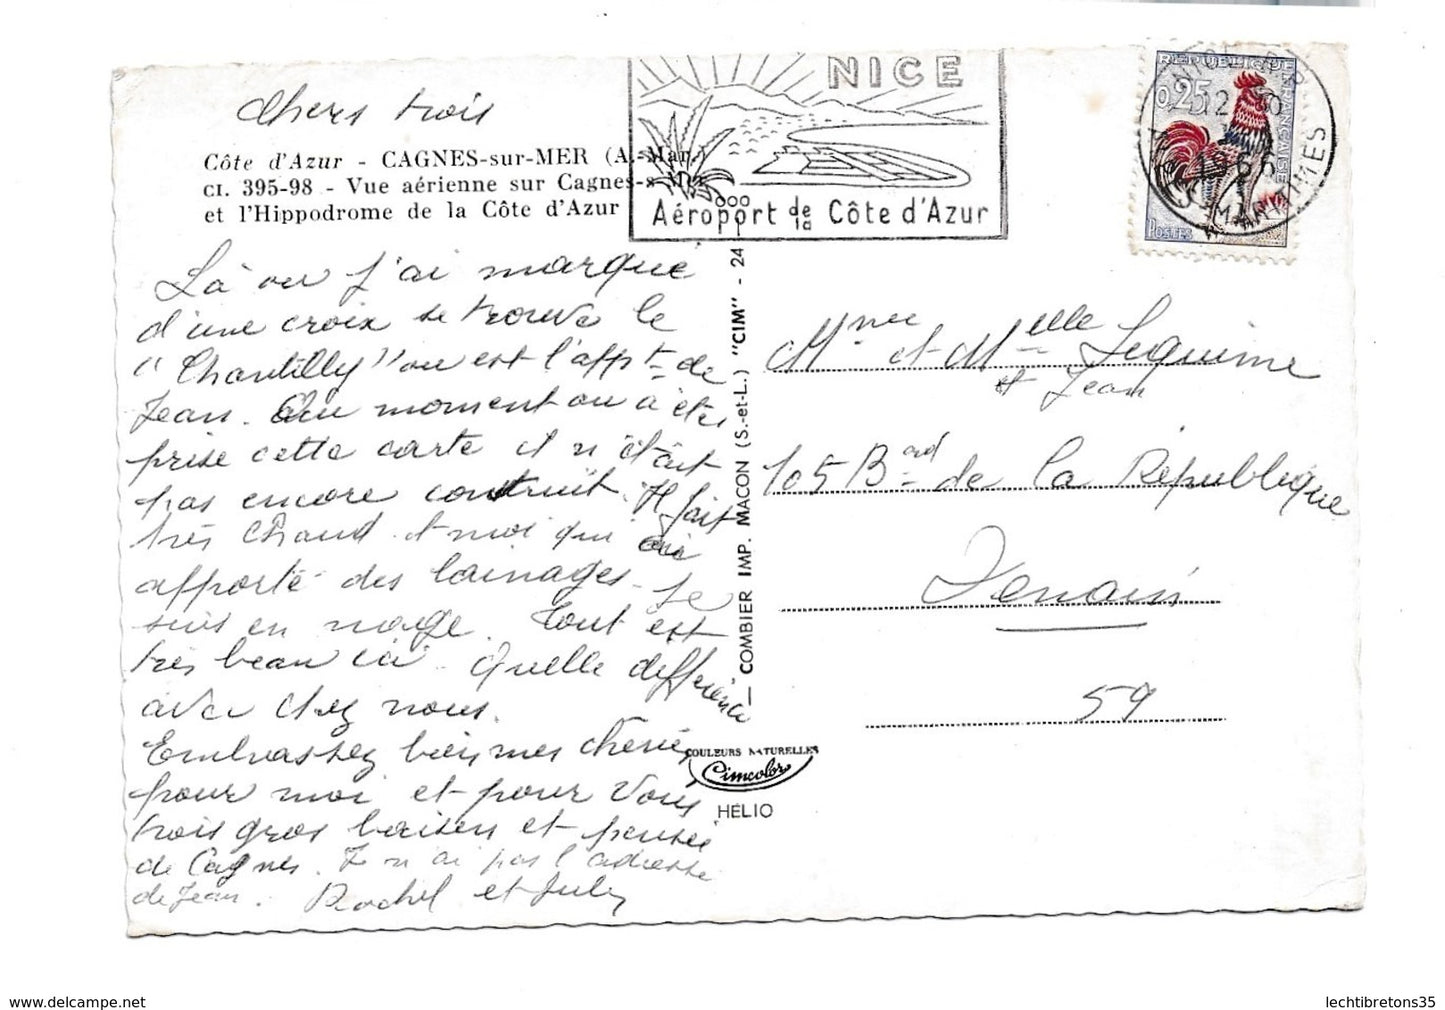 Chers trois
Côte d'Azur - CAGNES-sur-MER (A.-Mar.)
CI. 395-98 - Vue aérienne sur Cagnes-s-Mer
et l'Hippodrome de la Côte d'Azur
NICE
Aéroport de la Côte d'Azur
REPUBLIQUE FRANÇAISE
0,25
POSTES
12 30
1966
ALPES MARITIMES
Là ou j'ai marqué
d'une croix se trouve le
"Chantilly" ou est l'appt de
Jean. Au moment ou a été
prise cette carte il n'était
pas encore construit. Il fait
très chaud et moi qui ai
apporté des lainages je
suis en nage. Tout est
très beau ici. Quelle difference
avec chez nous.
Embrassez bien mes cheries
pour moi et pour Vous
trois gros baisers et pensées
de Cagnes. Je n'ai pas l'adresse
de Jean. Rachel et July
COMBIER IMP. MACON (S.-et-L.) "CIM" - 24
COULEURS NATURELLES
Cimcolor
HÉLIO
Mme et Melle Lequime
et Jean
105 Bard de la République
Denain
59
lechtibretons35